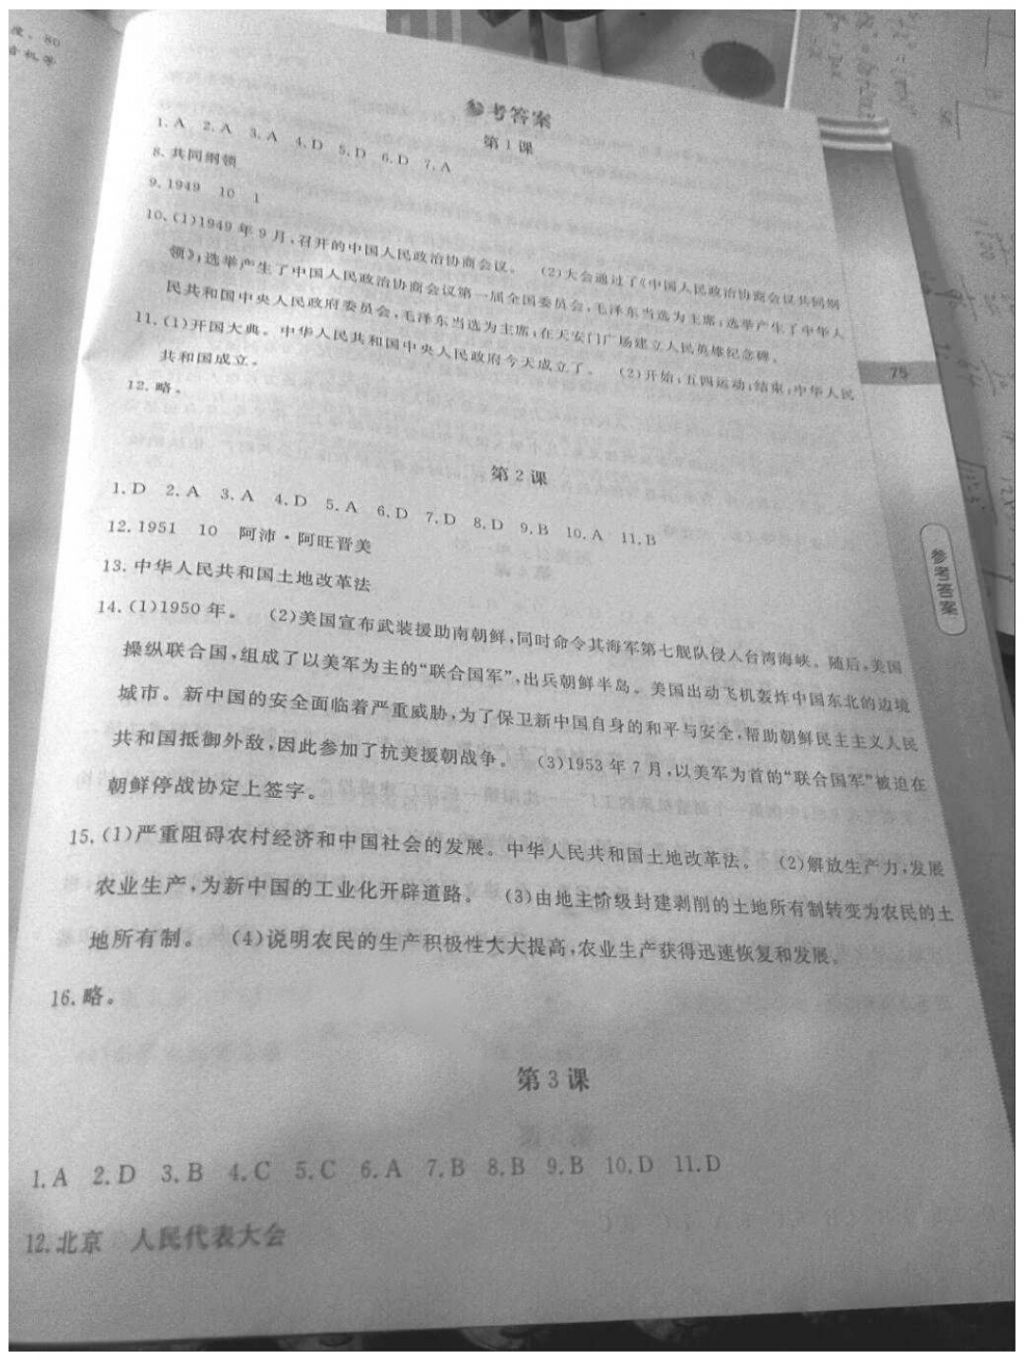 度，80
音机等
参考答案
第1课
1.A 2.A 3.A 4.D 5.D 6.D 7.A
8.共同纲领
9.1949 10 1
10.(1)1949年9月，召开的中国人民政治协商会议。 (2)大会通过了《中国人民政治协商会议共同纲
领》；选举产生了中国人民政治协商会议第一届全国委员会，毛泽东当选为主席；选举产生了中华人
民共和国中央人民政府委员会，毛泽东当选为主席；在天安门广场建立人民英雄纪念碑。
11.(1)开国大典。中华人民共和国中央人民政府今天成立了。 (2)开始：五四运动；结束：中华人民
共和国成立。
12.略。
75
第2课
1.D 2.A 3.A 4.D 5.A 6.D 7.D 8.D 9.B 10.A 11.B
12.1951 10 阿沛·阿旺晋美
13.中华人民共和国土地改革法
参考答案
14.(1)1950年。 (2)美国宣布武装援助南朝鲜，同时命令其海军第七舰队侵入台湾海峡。随后，美国
操纵联合国，组成了以美军为主的“联合国军”，出兵朝鲜半岛。美国出动飞机轰炸中国东北的边境
城市。新中国的安全面临着严重威胁，为了保卫新中国自身的和平与安全，帮助朝鲜民主主义人民
共和国抵御外敌，因此参加了抗美援朝战争。 (3)1953年7月，以美军为首的“联合国军”被迫在
朝鲜停战协定上签字。
15.(1)严重阻碍农村经济和中国社会的发展。中华人民共和国土地改革法。 (2)解放生产力，发展
农业生产，为新中国的工业化开辟道路。 (3)由地主阶级封建剥削的土地所有制转变为农民的土
地所有制。 (4)说明农民的生产积极性大大提高，农业生产获得迅速恢复和发展。
16.略。
第3课
1.A 2.D 3.B 4.C 5.C 6.A 7.B 8.B 9.B 10.D 11.D
12.北京 人民代表大会